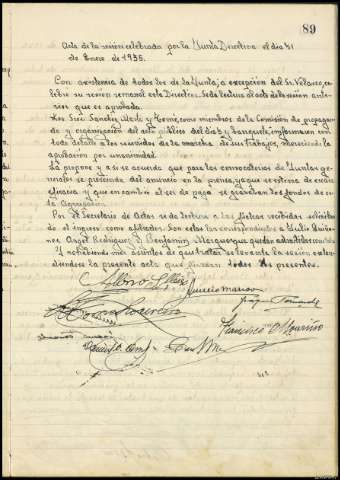 89
Acta de la sesión celebrada por la Junta Directiva el día 31
de Enero de 1935.
Con asistencia de todos los de la Junta, a excepción del Sr. Velasco, ce-
lebra su sesión semanal esta Directiva. Se da lectura al acta de la sesión ante-
rior que es aprobada.
Los Sres Sanchez y como miembros de la Comisión de propagan-
da y organización del acto público del día 3 y banquete, informan con
todo detalle a los reunidos de la marcha de sus trabajos, mereciendo la
aprobación por unanimidad.
Se propone y así se acuerda que para las convocatorias de Juntas gene-
rales se prescinda del anuncio en la prensa, ya que se estima de escasa
eficacia y que en cambio al ser de pago se gravarían los fondos de cu
la Agrupación.
Por el Secretario de Actas se da lectura a las fichas recibidas solicitan-
do el ingreso como afiliados. Son estas las correspondientes a Julio Quiño-
nes, Angel Rodriguez y Benjamin que quedan admitidos
Y no habiendo más asuntos que tratar se levanta la sesión, exten-
diendose la presente acta que firman todos los presentes.
Francisco Mouriño